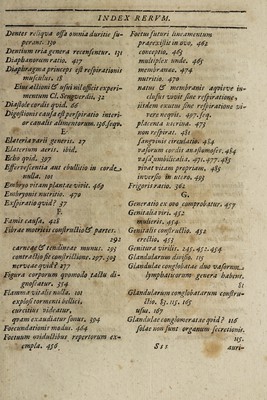 INDEX RERVM.
Dentes reliqua ossa omnia duritie su-
perant. 150
Dentium tria genera recensentur. 151
Diaphanorum ratio. 417
Diaphragma princeps est respirationis
musculus. 18
Eius actioni & usui nil officit experi-
mentum Cl. Sengverdii. 32
Diastole cordis quid. 66
Digestionis causa est perspiratio interi-
or canalis alimentorum. 136. seqv.
E.
Elateria varii generis. 27
Elaterum aeris. ibid.
Echo quid. 397
Effervescentia aut ebullitio in corde
nulla. 101
Embryo vitam plantae vivit. 469
Embryonis nutritio. 470
Exspiratio qvid? 37
F.
Famis causa. 428
Fibrae motricis constructio & partes.
292
carneae & tendineae munus. 293
contractio sive constrictiones. 297. 303
nervosae qvid? 277
Figura corporum qvomodo tactu di-
gnoscatur. 354
Flamma vitalis nulla. 101
explosi tormenti bellici,
eurcitius videatur,
qvam exaudiatur sonus. 394
Foecundationis modus. 464
Foetuum in ductibus repertorum ex-
empla. 456.
Foetus futuri lineamentum
praeexistit in ovo. 462
conceptio. 463
multiplex unde. 465
membranae. 474
nutritio. 470
natus & membranis aqvisve in-
clusus vivit sine respiratione,
iitdem exutus sine respiratione vi-
vere neqvit. 497. seq.
placenta uterina. 473
non respirat. 481
sangvinis circulatio. 484
vasorum cordis anastomoses. 484
vasa umbilicalia. 471. 477. 485
vivat vitam propriam. 485
inversio in utero. 493
Frigoris ratio. 361
G.
Generatio ex ovo comprobatur. 457
Genitalia viri. 432
mulieris. 454
Genitalis constructio. 452
erectio. 453
Genitura virilis. 245. 452. 454
Glandularum divisio. 115
Glandulae conglobatae duo vasorum
lymphaticorum genera habent.
81
Glandularum conglobatarum constru-
ctio. 83. 115. 165
usus. 167
Glandulae conglomeratae qvid? 116
solae non sunt organum secretionis.
115.
S s s
auri-